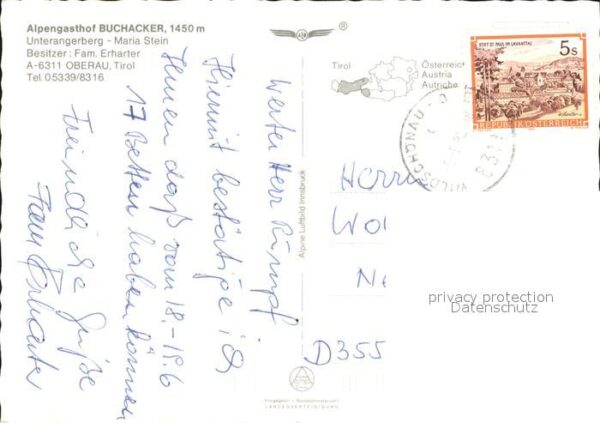 Alpengasthof BUCHACKER, 1450 m
Unterangerberg - Maria Stein
Besitzer: Fam. Erharter
A-6311 OBERAU, Tirol
Tel. 05339/8316
Werter Herr Rümpf
Hiermit bestätige ich
Ihnen daß vom 18.-19.6
17 Betten haben können
Freundliche Grüße
Fam Erharter
Alpine Luftbild Innsbruck
Tirol
Österreich
Austria
Autriche
STIFT ST. PAUL IM LAVANTTAL
5s
REPUBLIK ÖSTERREICH
WILDSCHÖNAU
Herrn
Wo
Ne
D355
privacy protection
Datenschutz
LANDESVERTEIDIGUNG